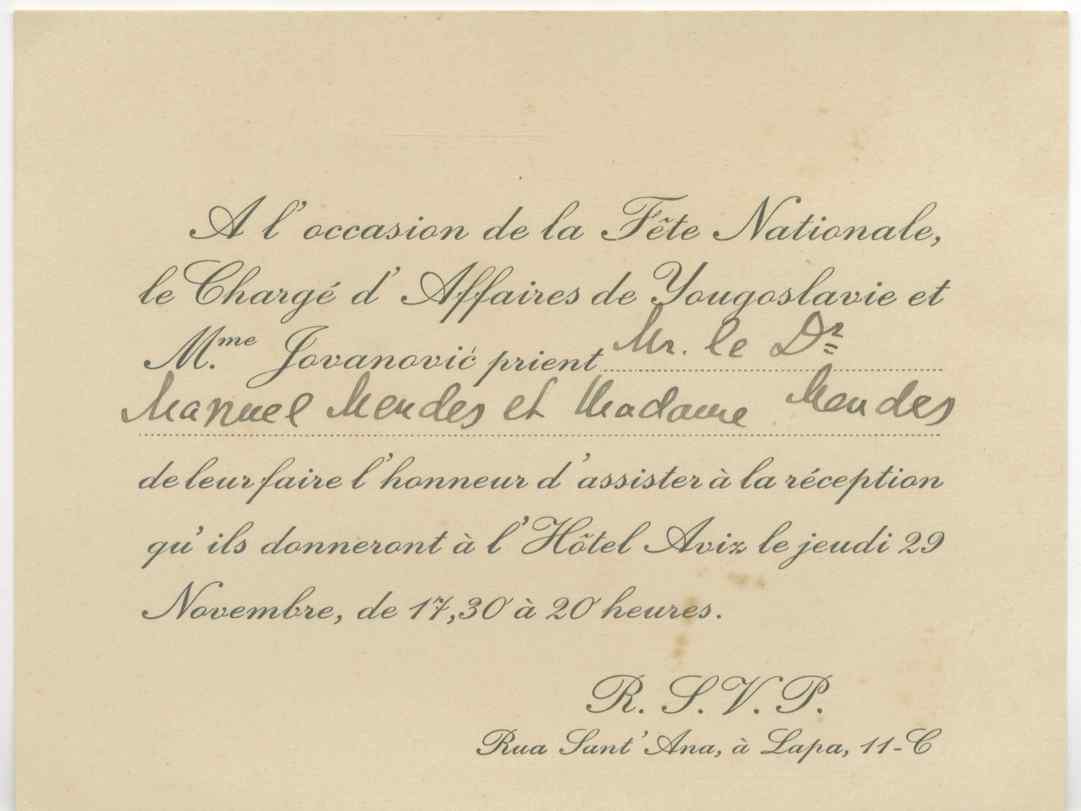 A l'occasion de la Fête Nationale,
le Chargé d'Affaires de Yougoslavie et
M.me Jovanović prient Mr. le Dr
Manuel Mendes et Madame Mendes
de leur faire l'honneur d'assister à la réception
qu'ils donneront à l'Hôtel Aviz le jeudi 29
Novembre, de 17,30 à 20 heures.
R. S. V. P.
Rua Sant'Ana, à Lapa, 11-C